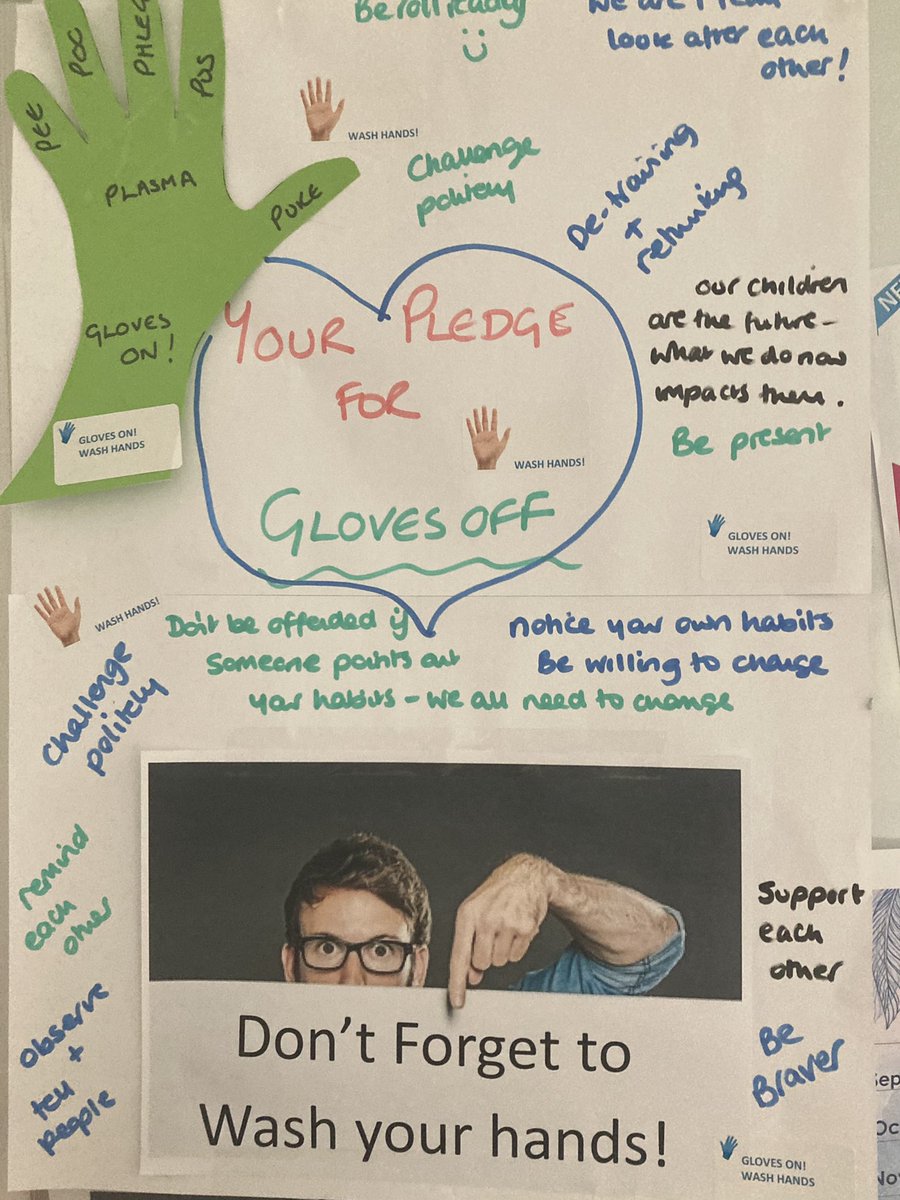 Be roll ready
look after each
other!
PEE
POO
PHLEG
PUS
PLASMA
PUKE
GLOVES
ON!
GLOVES ON!
WASH HANDS
WASH HANDS!
Challenge
politely
De-training
+
rethinking
our children
are the future-
what we do now
impacts them.
Be present
YOUR PLEDGE
FOR
WASH HANDS!
GLOVES OFF
GLOVES ON!
WASH HANDS
WASH HANDS!
Don't be offended if
someone points out
your habits - we all need to change
notice your own habits
Be willing to change
Challenge
politely
remind
each
other
observe
+
tell
people
Support
each
other
Be
Braver
Don't Forget to
Wash your hands!
GLOVES ON!
WASH HANDS